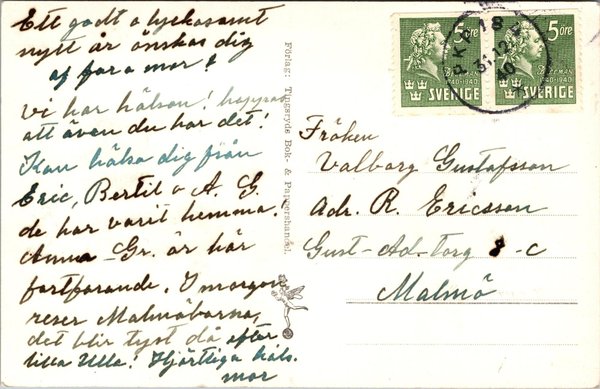 Ett godt o lyckosamt
nytt år önskas dig
af far o mor!
Vi har hälsan! hoppas
att även du har det!
Kan hälsa dig från
Eric, Bertil o A. G.
de har varit hemma.
Anna Gr. är här
fortfarande. I morgon
reser Malmöbarna,
det blir tyst då efter
lilla Ulla. Hjärtliga häls.
mor
Förlag: Tingsryds Bok- & Pappershandel.
5 ÖRE
1740-1940
SVERIGE
5 ÖRE
1740-1940
SVERIGE
PKP 18
31.12
40
Fröken
Valborg Gustafsson
Adr. R. Ericsson
Gust-Ad-torg 8-c
Malmö